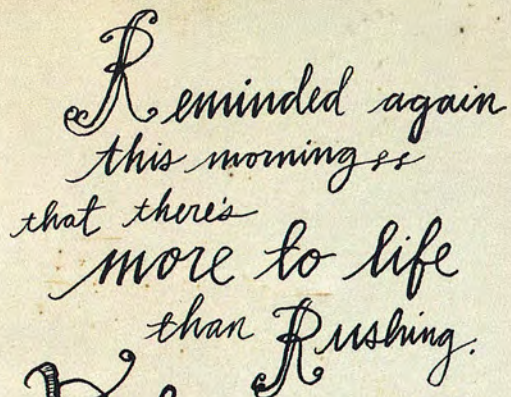 Reminded again
this morning
that there's
more to life
than Rushing.